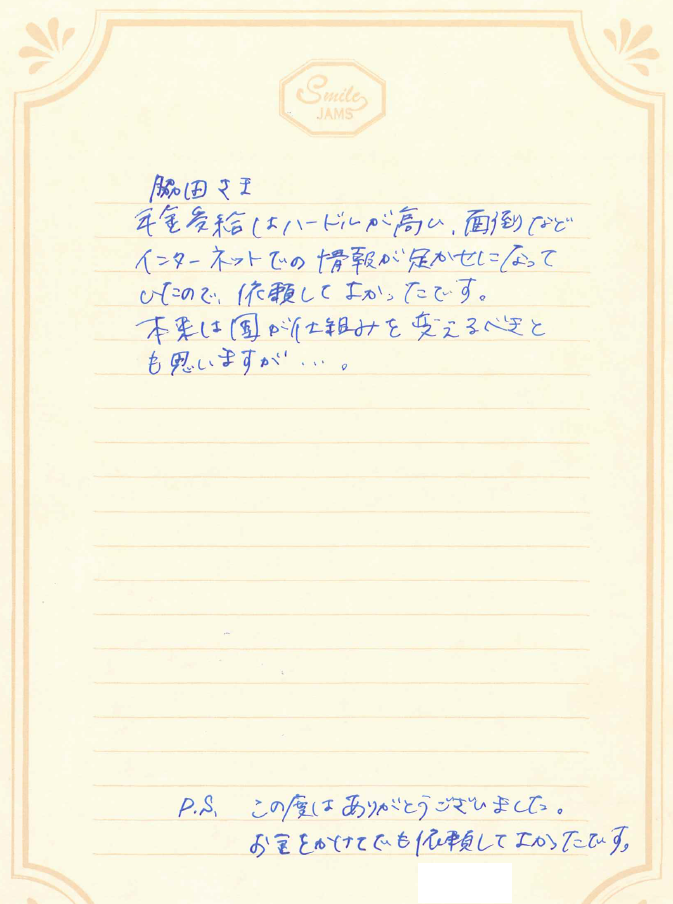 Smile
JAMS
脇田さま
年金受給はハードルが高い、面倒など
インターネットでの情報が足かせになって
いたので、依頼してよかったです。
本来は国が仕組みを変えるべきと
も思いますが…。
P.S. この度はありがとうございました。
お金をかけてでも依頼してよかったです。